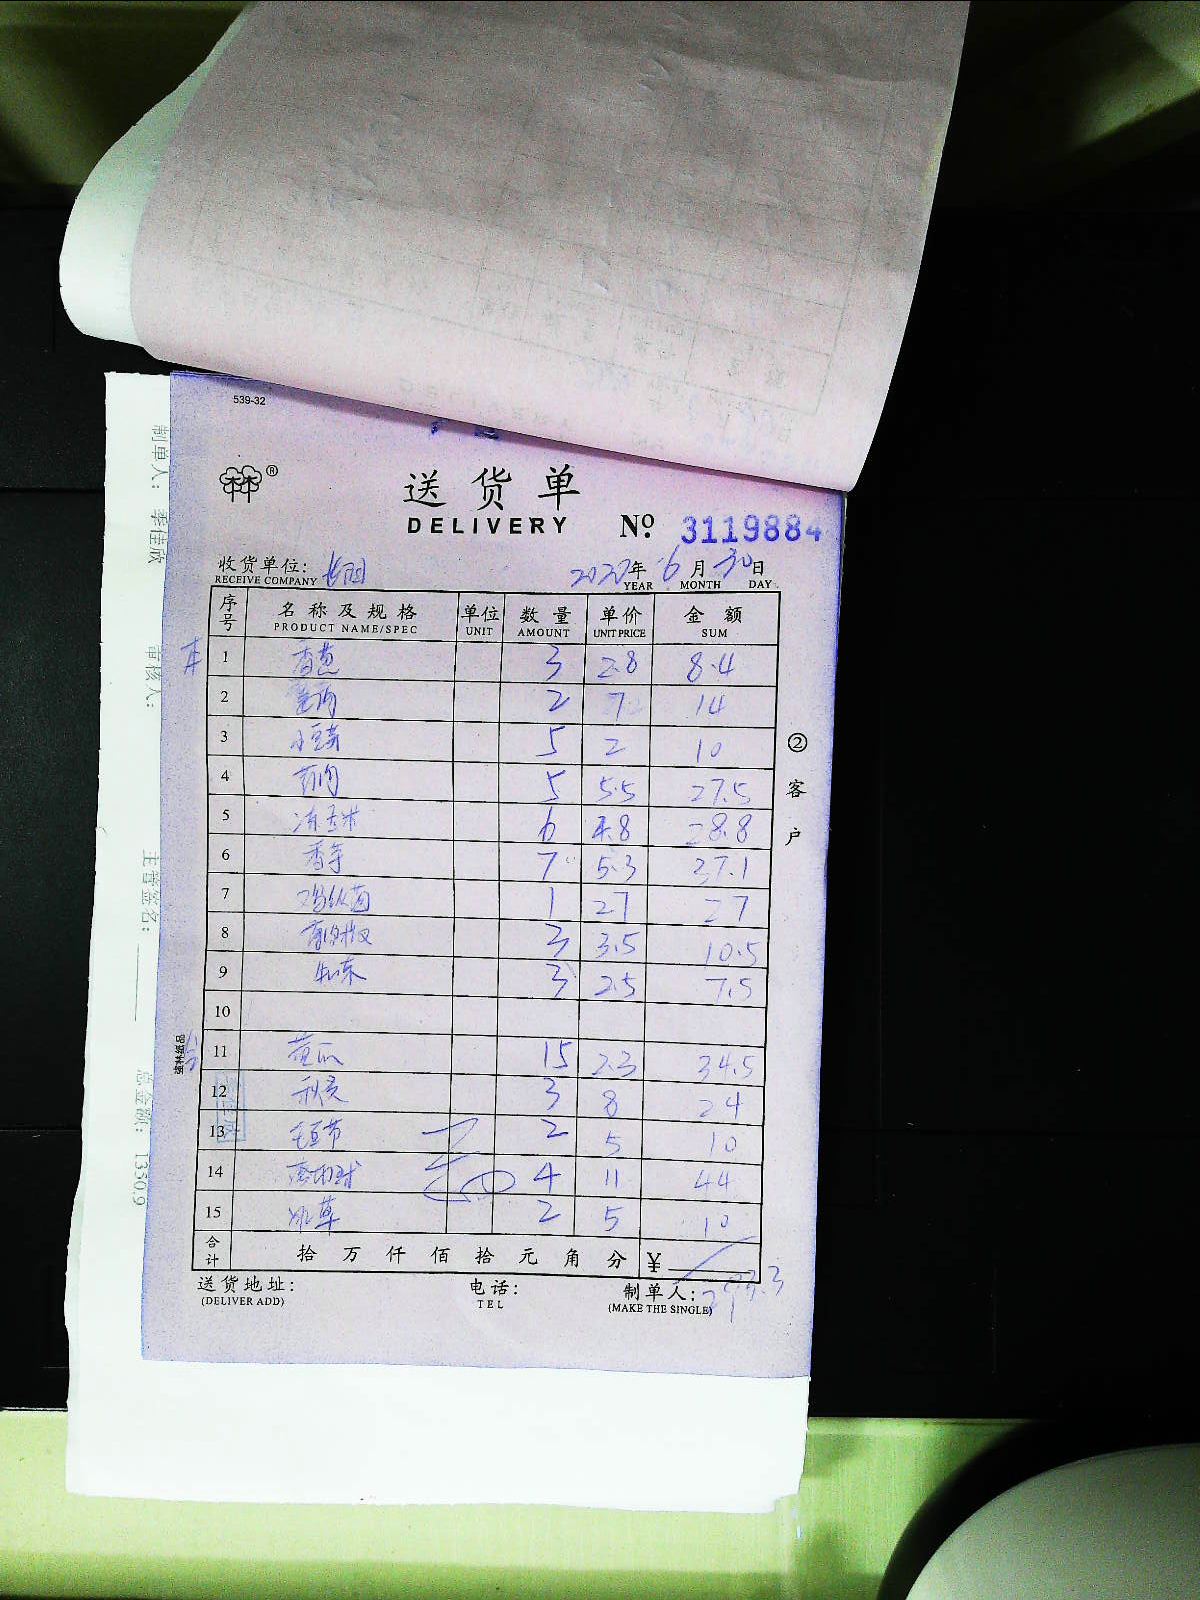 539-32
送货单
DELIVERY No. 3119884
收货单位: 2020年6月30日
RECEIVE COMPANY YEAR MONTH DAY
序号 名称及规格 单位 数量 单价 金额
PRODUCT NAME/SPEC UNIT AMOUNT UNIT PRICE SUM
1 香葱 3 2.8 8.4
2 2 7 14
3 小豆芽 5 2 10
4 5 5.5 27.5
5 冻玉米 6 4.8 28.8
6 香芋 7 5.3 37.1
7 鸡纵菌 1 27 27
8 3 3.5 10.5
9 3 2.5 7.5
10
11 黄瓜 15 2.3 34.5
12 秋葵 3 8 24
13 毛豆节 2 5 10
14 4 11 44
15 冰草 2 5 10
合计 拾 万 仟 佰 拾 元 角 分 ¥
293.3
送货地址: 电话: 制单人:
(DELIVER ADD) TEL (MAKE THE SINGLE)
②客户
強林纸品
制单人: 季佳欣
审核人:
主管签名:
总金额: 1330.9